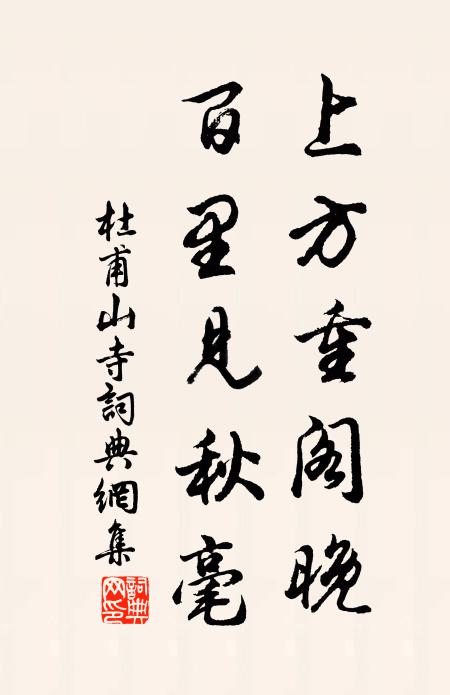 上方重阁晚
百里見秋毫
杜甫山寺詞典網集
詞典网印